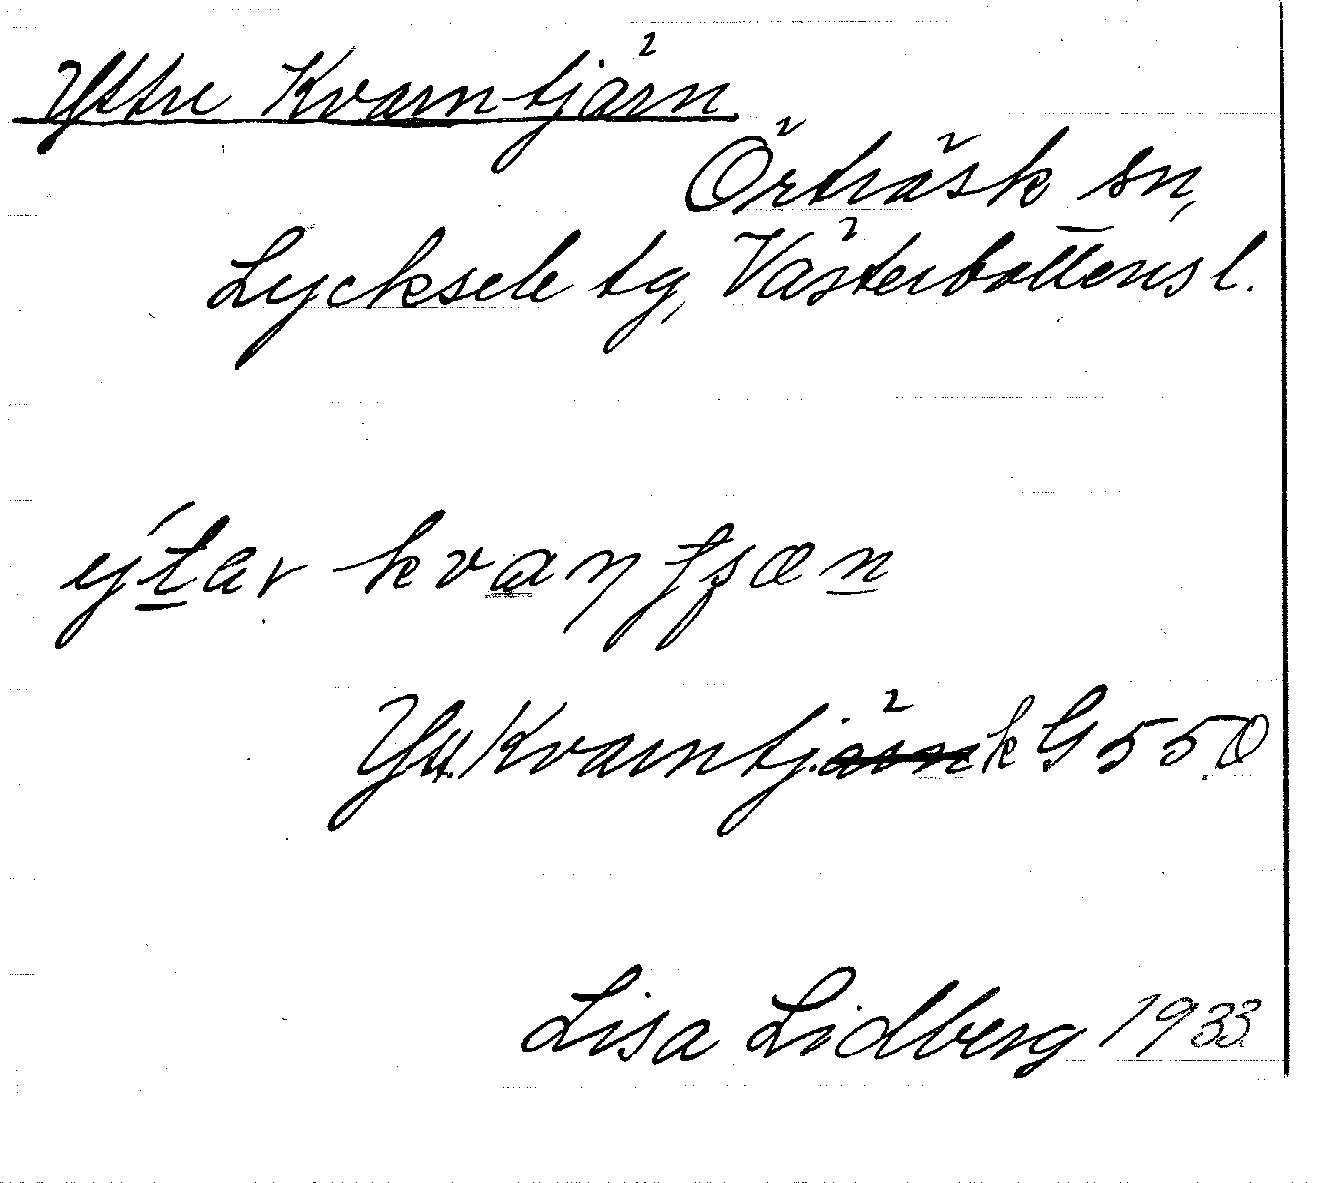 Yttre Kvarntjärn
Örträsk sn,
Lycksele tg, Västerbottens l.
Ytt. Kvarntj. k G 550
Lisa Lidberg 1933